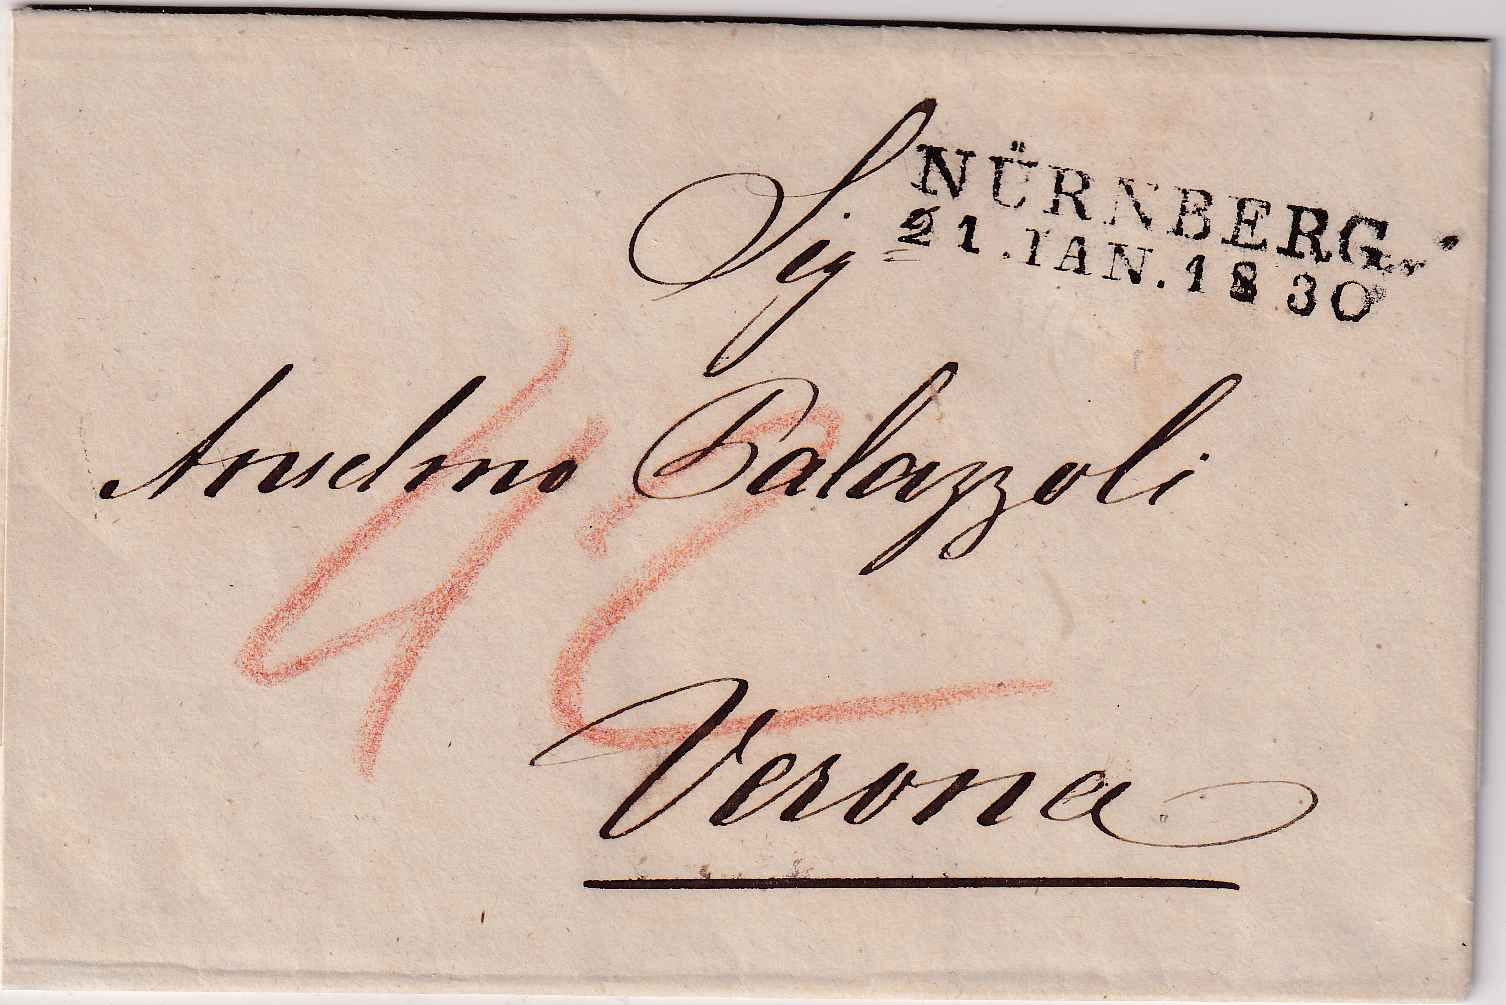 Sig
NÜRNBERG.
21.IAN.1830
Anselmo Palazzoli
42
Verona